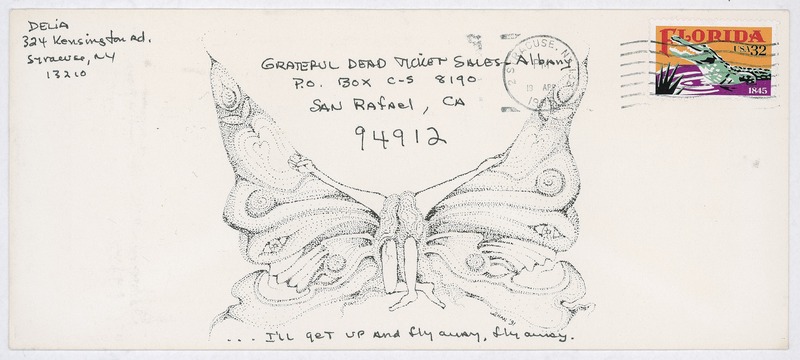 DELIA
324 Kensington Rd.
Syracuse, NY
13210
GRATEFUL DEAD TICKET SALES - Albany
P.O. BOX C-S 8190
SAN Rafael, CA
94912
SYRACUSE, N
APR
FLORIDA
USA 32
1845
... I'll get up and fly away, fly away.